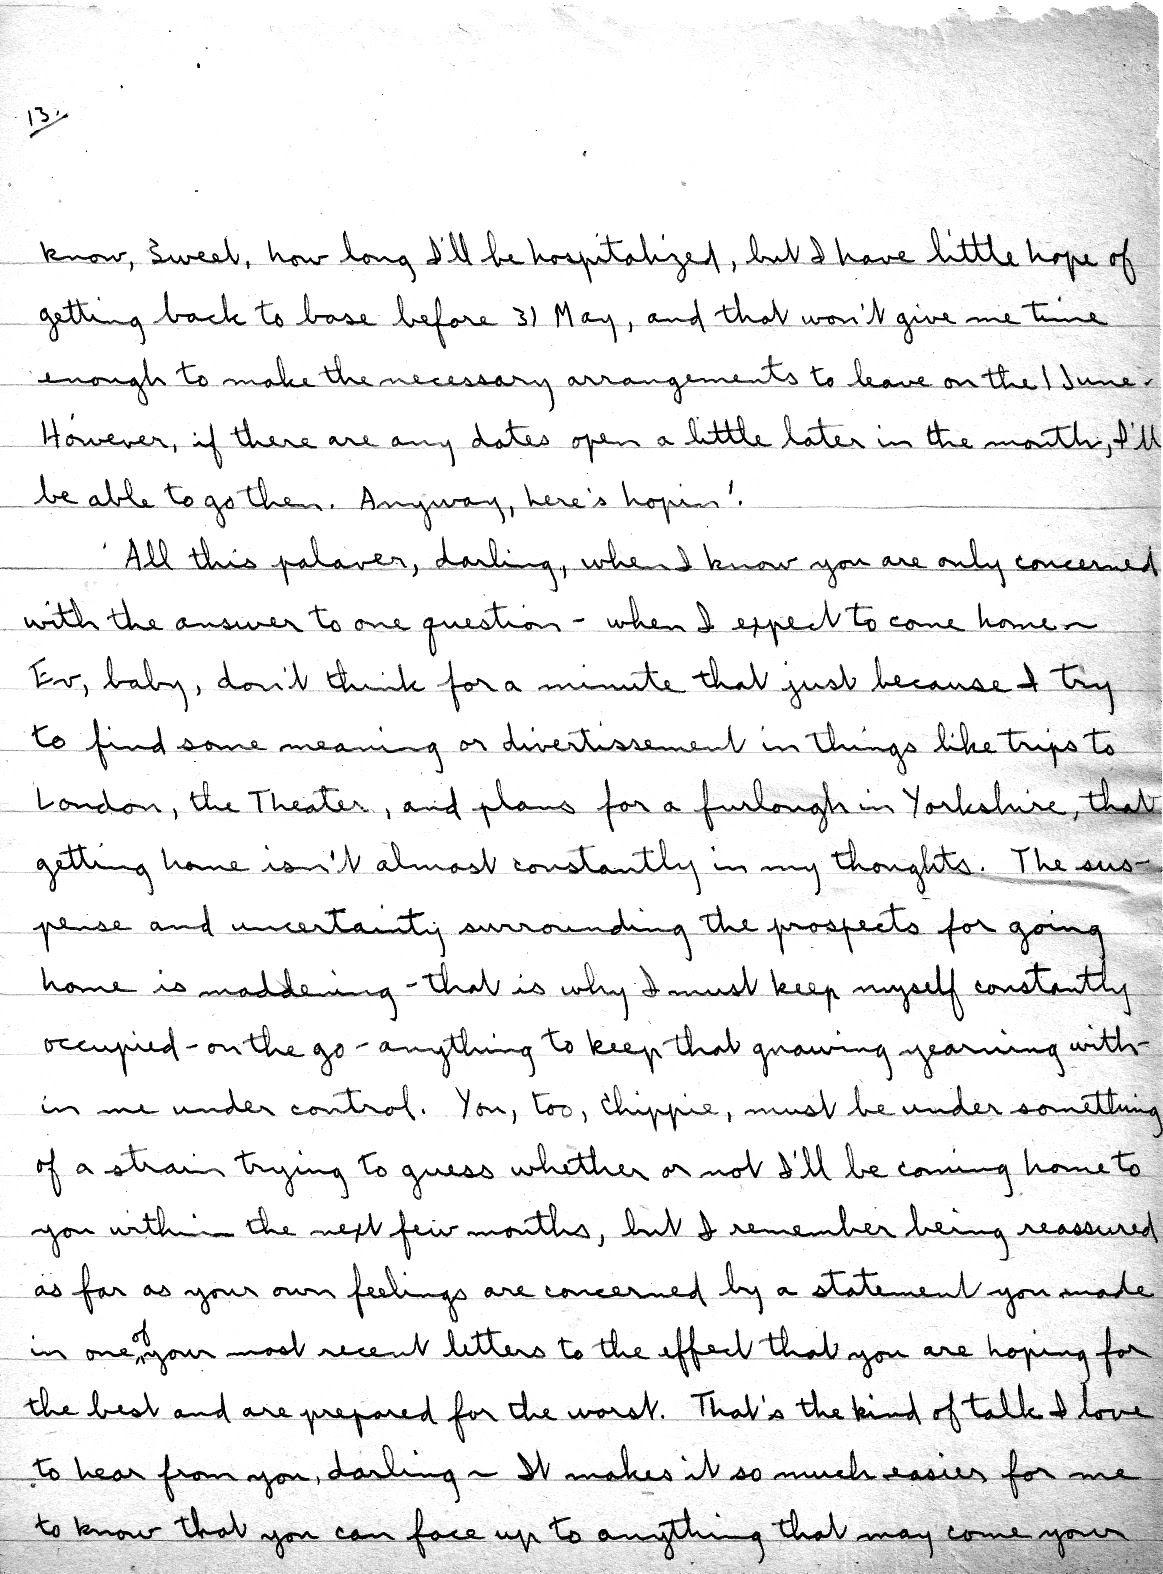 13.
know, Sweet, how long I'll be hospitalized, but I have little hope of
getting back to base before 31 May, and that won't give me time
enough to make the necessary arrangements to leave on the 1 June.
However, if there are any dates open a little later in the month, I'll
be able to go then. Anyway, here's hopin'.
All this palaver, darling, when I know you are only concerned
with the answer to one question - when I expect to come home ~
Ev, baby, don't think for a minute that just because I try
to find some meaning or divertissement in things like trips to
London, the Theater, and plans for a furlough in Yorkshire, that
getting home isn't almost constantly in my thoughts. The sus-
pense and uncertainty surrounding the prospects for going
home is maddening - that is why I must keep myself constantly
occupied - on the go - anything to keep that gnawing yearning with-
in me under control. You, too, Chippie, must be under something
of a strain trying to guess whether or not I'll be coming home to
you within the next few months, but I remember being reassured
as far as your own feelings are concerned by a statement you made
in one of your most recent letters to the effect that you are hoping for
the best and are prepared for the worst. That's the kind of talk I love
to hear from you, darling ~ It makes it so much easier for me
to know that you can face up to anything that may come your